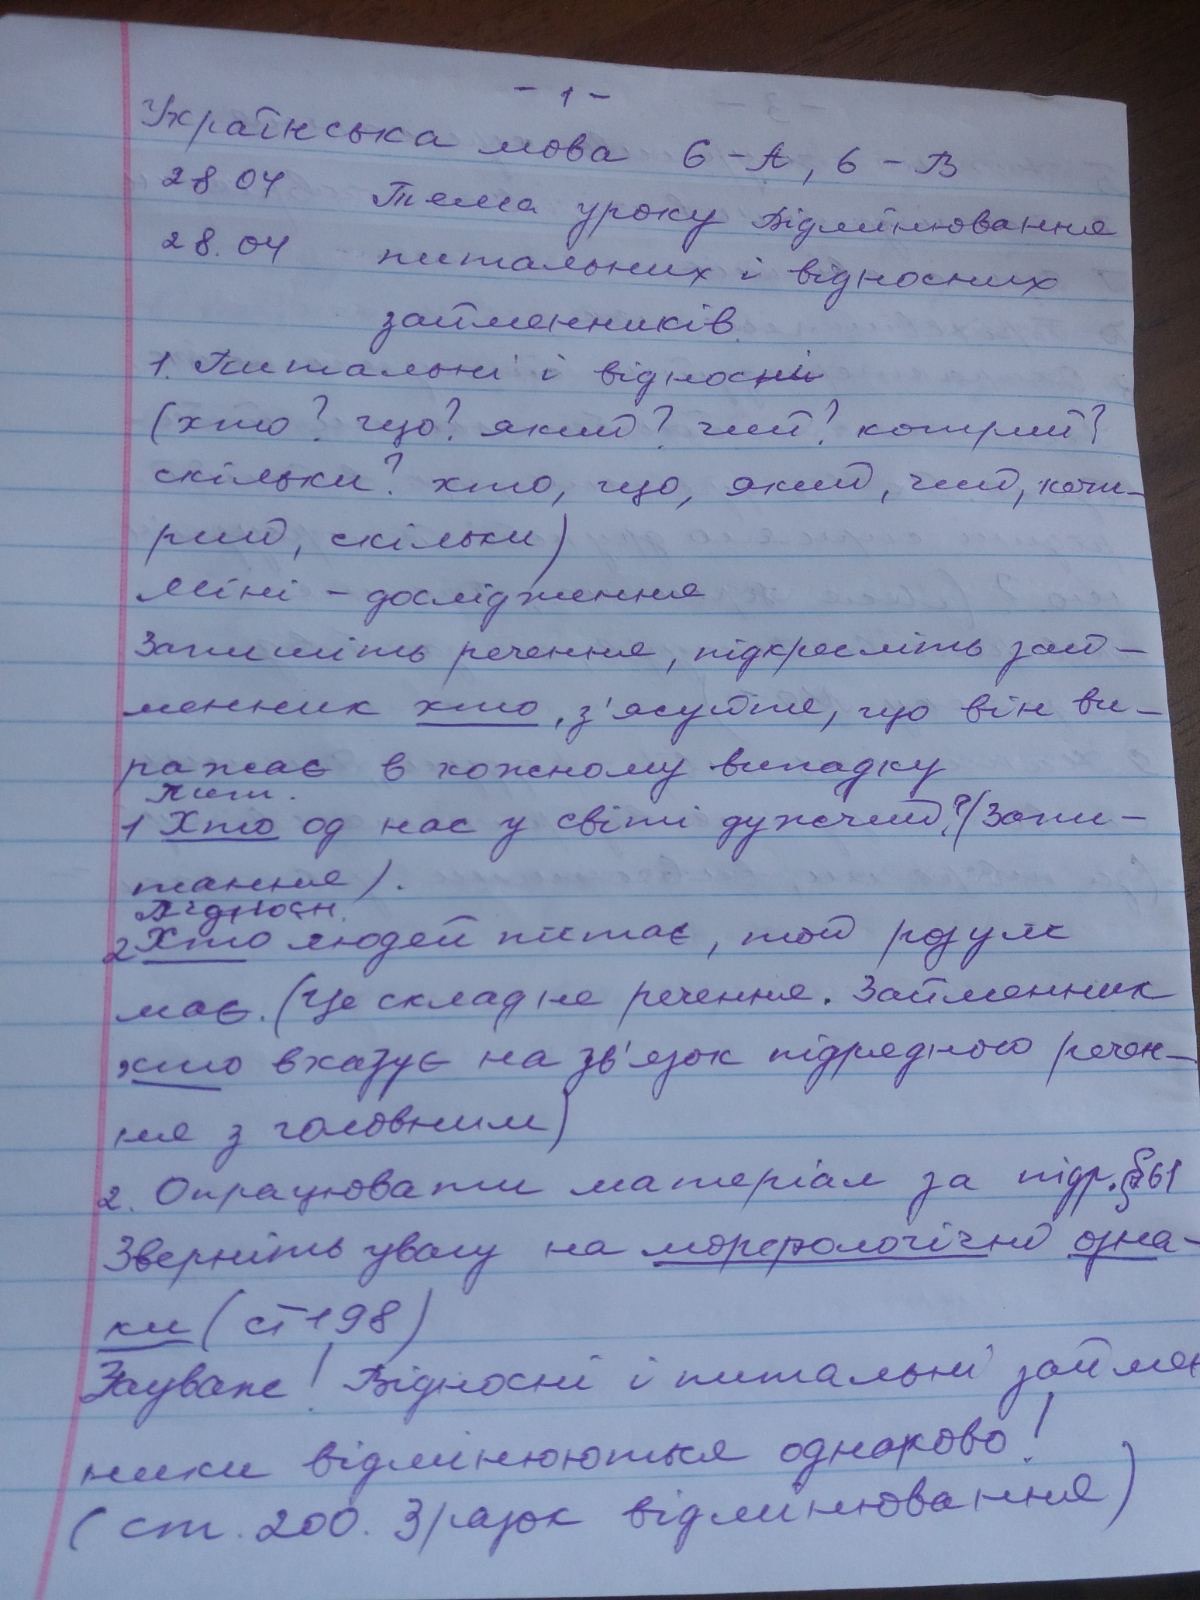 - 1 -
Українська мова 6 - А, 6 - В
28 04 Тема уроку Відмінювання
28.04 питальних і відносних
займенників.
1. Питальні і відносні
(хто? що? який? чий? котрий?
скільки? хто, що, який, чий, кот-
рий, скільки)
Міні - дослідження
Запишіть речення, підкресліть зай-
менник хто, з'ясуйте, що він ви-
ражає в кожному випадку
Пит.
1 Хто од нас у світі дужчий? (Запи-
тання).
Відносн.
2 Хто людей питає, той розум
має. (Це складне речення. Займенник
хто вказує на зв'язок підрядного речен-
ня з головним)
2. Опрацювати матеріал за підр. §61
Зверніть увагу на морфологічні озна-
ки (ст 198)
Зауваж! Відносні і питальні займен
ники відмінюються однаково!
(ст. 200. Зразок відмінювання)